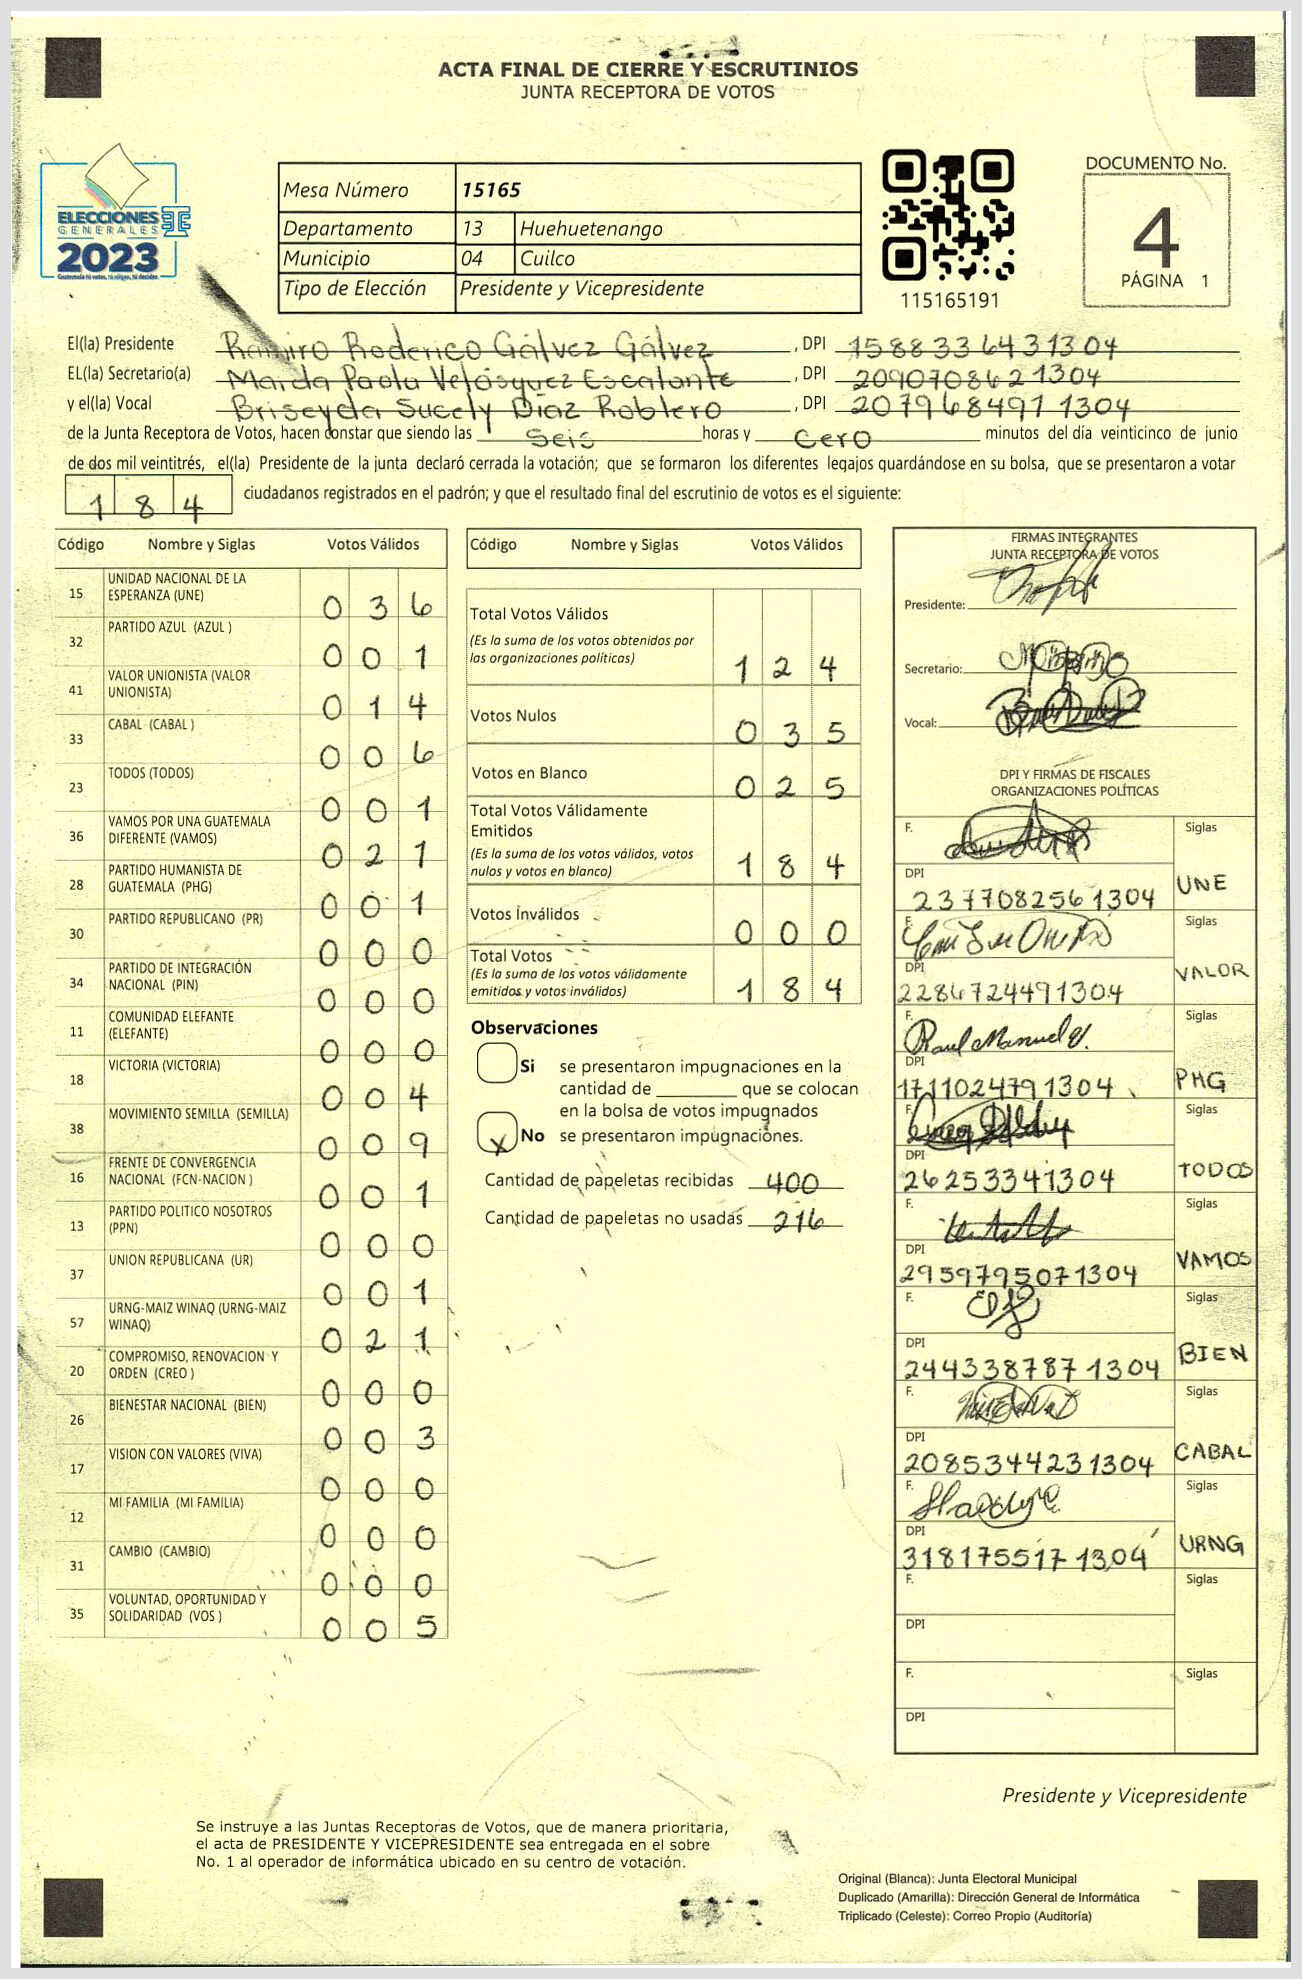 ACTA FINAL DE CIERRE Y ESCRUTINIOS
JUNTA RECEPTORA DE VOTOS
ELECCIONES
GENERALES
2023
Guatemala tú votas, tú eliges, tú decides
Mesa Número 15165
Departamento 13 Huehuetenango
Municipio 04 Cuilco
Tipo de Elección Presidente y Vicepresidente
115165191
DOCUMENTO No.
4
PÁGINA 1
El(la) Presidente Ramiro Roderico Gálvez Gálvez, DPI 1588336431304
EL(la) Secretario(a) Maida Paola Velásquez Escalante, DPI 2090708621304
y el(la) Vocal Briseyda Sucely Díaz Roblero, DPI 2079684971304
de la Junta Receptora de Votos, hacen constar que siendo las Seis horas y Cero minutos del día veinticinco de junio
de dos mil veintitrés, el(la) Presidente de la junta declaró cerrada la votación; que se formaron los diferentes legajos quardándose en su bolsa, que se presentaron a votar
184 ciudadanos registrados en el padrón; y que el resultado final del escrutinio de votos es el siguiente:
Código Nombre y Siglas Votos Válidos
15 UNIDAD NACIONAL DE LA ESPERANZA (UNE) 036
32 PARTIDO AZUL (AZUL ) 001
41 VALOR UNIONISTA (VALOR UNIONISTA) 014
33 CABAL (CABAL ) 006
23 TODOS (TODOS) 001
36 VAMOS POR UNA GUATEMALA DIFERENTE (VAMOS) 021
28 PARTIDO HUMANISTA DE GUATEMALA (PHG) 001
30 PARTIDO REPUBLICANO (PR) 000
34 PARTIDO DE INTEGRACIÓN NACIONAL (PIN) 000
11 COMUNIDAD ELEFANTE (ELEFANTE) 000
18 VICTORIA (VICTORIA) 004
38 MOVIMIENTO SEMILLA (SEMILLA) 009
16 FRENTE DE CONVERGENCIA NACIONAL (FCN-NACION ) 001
13 PARTIDO POLITICO NOSOTROS (PPN) 000
37 UNION REPUBLICANA (UR) 001
57 URNG-MAIZ WINAQ (URNG-MAIZ WINAQ) 021
20 COMPROMISO, RENOVACION Y ORDEN (CREO ) 000
26 BIENESTAR NACIONAL (BIEN) 003
17 VISION CON VALORES (VIVA) 000
12 MI FAMILIA (MI FAMILIA) 000
31 CAMBIO (CAMBIO) 000
35 VOLUNTAD, OPORTUNIDAD Y SOLIDARIDAD (VOS ) 005
Código Nombre y Siglas Votos Válidos
Total Votos Válidos
(Es la suma de los votos obtenidos por
las organizaciones políticas) 124
Votos Nulos 035
Votos en Blanco 025
Total Votos Válidamente
Emitidos
(Es la suma de los votos válidos, votos
nulos y votos en blanco) 184
Votos Inválidos 000
Total Votos
(Es la suma de los votos válidamente
emitidos y votos inválidos) 184
Observaciones
Si se presentaron impugnaciones en la
cantidad de ________ que se colocan
en la bolsa de votos impugnados
X No se presentaron impugnaciones.
Cantidad de papeletas recibidas 400
Cantidad de papeletas no usadas 216
FIRMAS INTEGRANTES
JUNTA RECEPTORA DE VOTOS
Presidente:
Secretario:
Vocal:
DPI Y FIRMAS DE FISCALES
ORGANIZACIONES POLÍTICAS
F. Siglas
DPI 2377082561304 UNE
F. Siglas
DPI 2286724491304 VALOR
F. Raul Manuel V. Siglas
DPI 1711024791304 PHG
F. Siglas
DPI 26253341304 TODOS
F. Siglas
DPI 2959795071304 VAMOS
F. Siglas
DPI 2443387871304 BIEN
F. Siglas
DPI 2085344231304 CABAL
F. Siglas
DPI 3181755171304 URNG
F. Siglas
DPI
F. Siglas
DPI
Presidente y Vicepresidente
Se instruye a las Juntas Receptoras de Votos, que de manera prioritaria,
el acta de PRESIDENTE Y VICEPRESIDENTE sea entregada en el sobre
No. 1 al operador de informática ubicado en su centro de votación.
Original (Blanca): Junta Electoral Municipal
Duplicado (Amarilla): Dirección General de Informática
Triplicado (Celeste): Correo Propio (Auditoría)